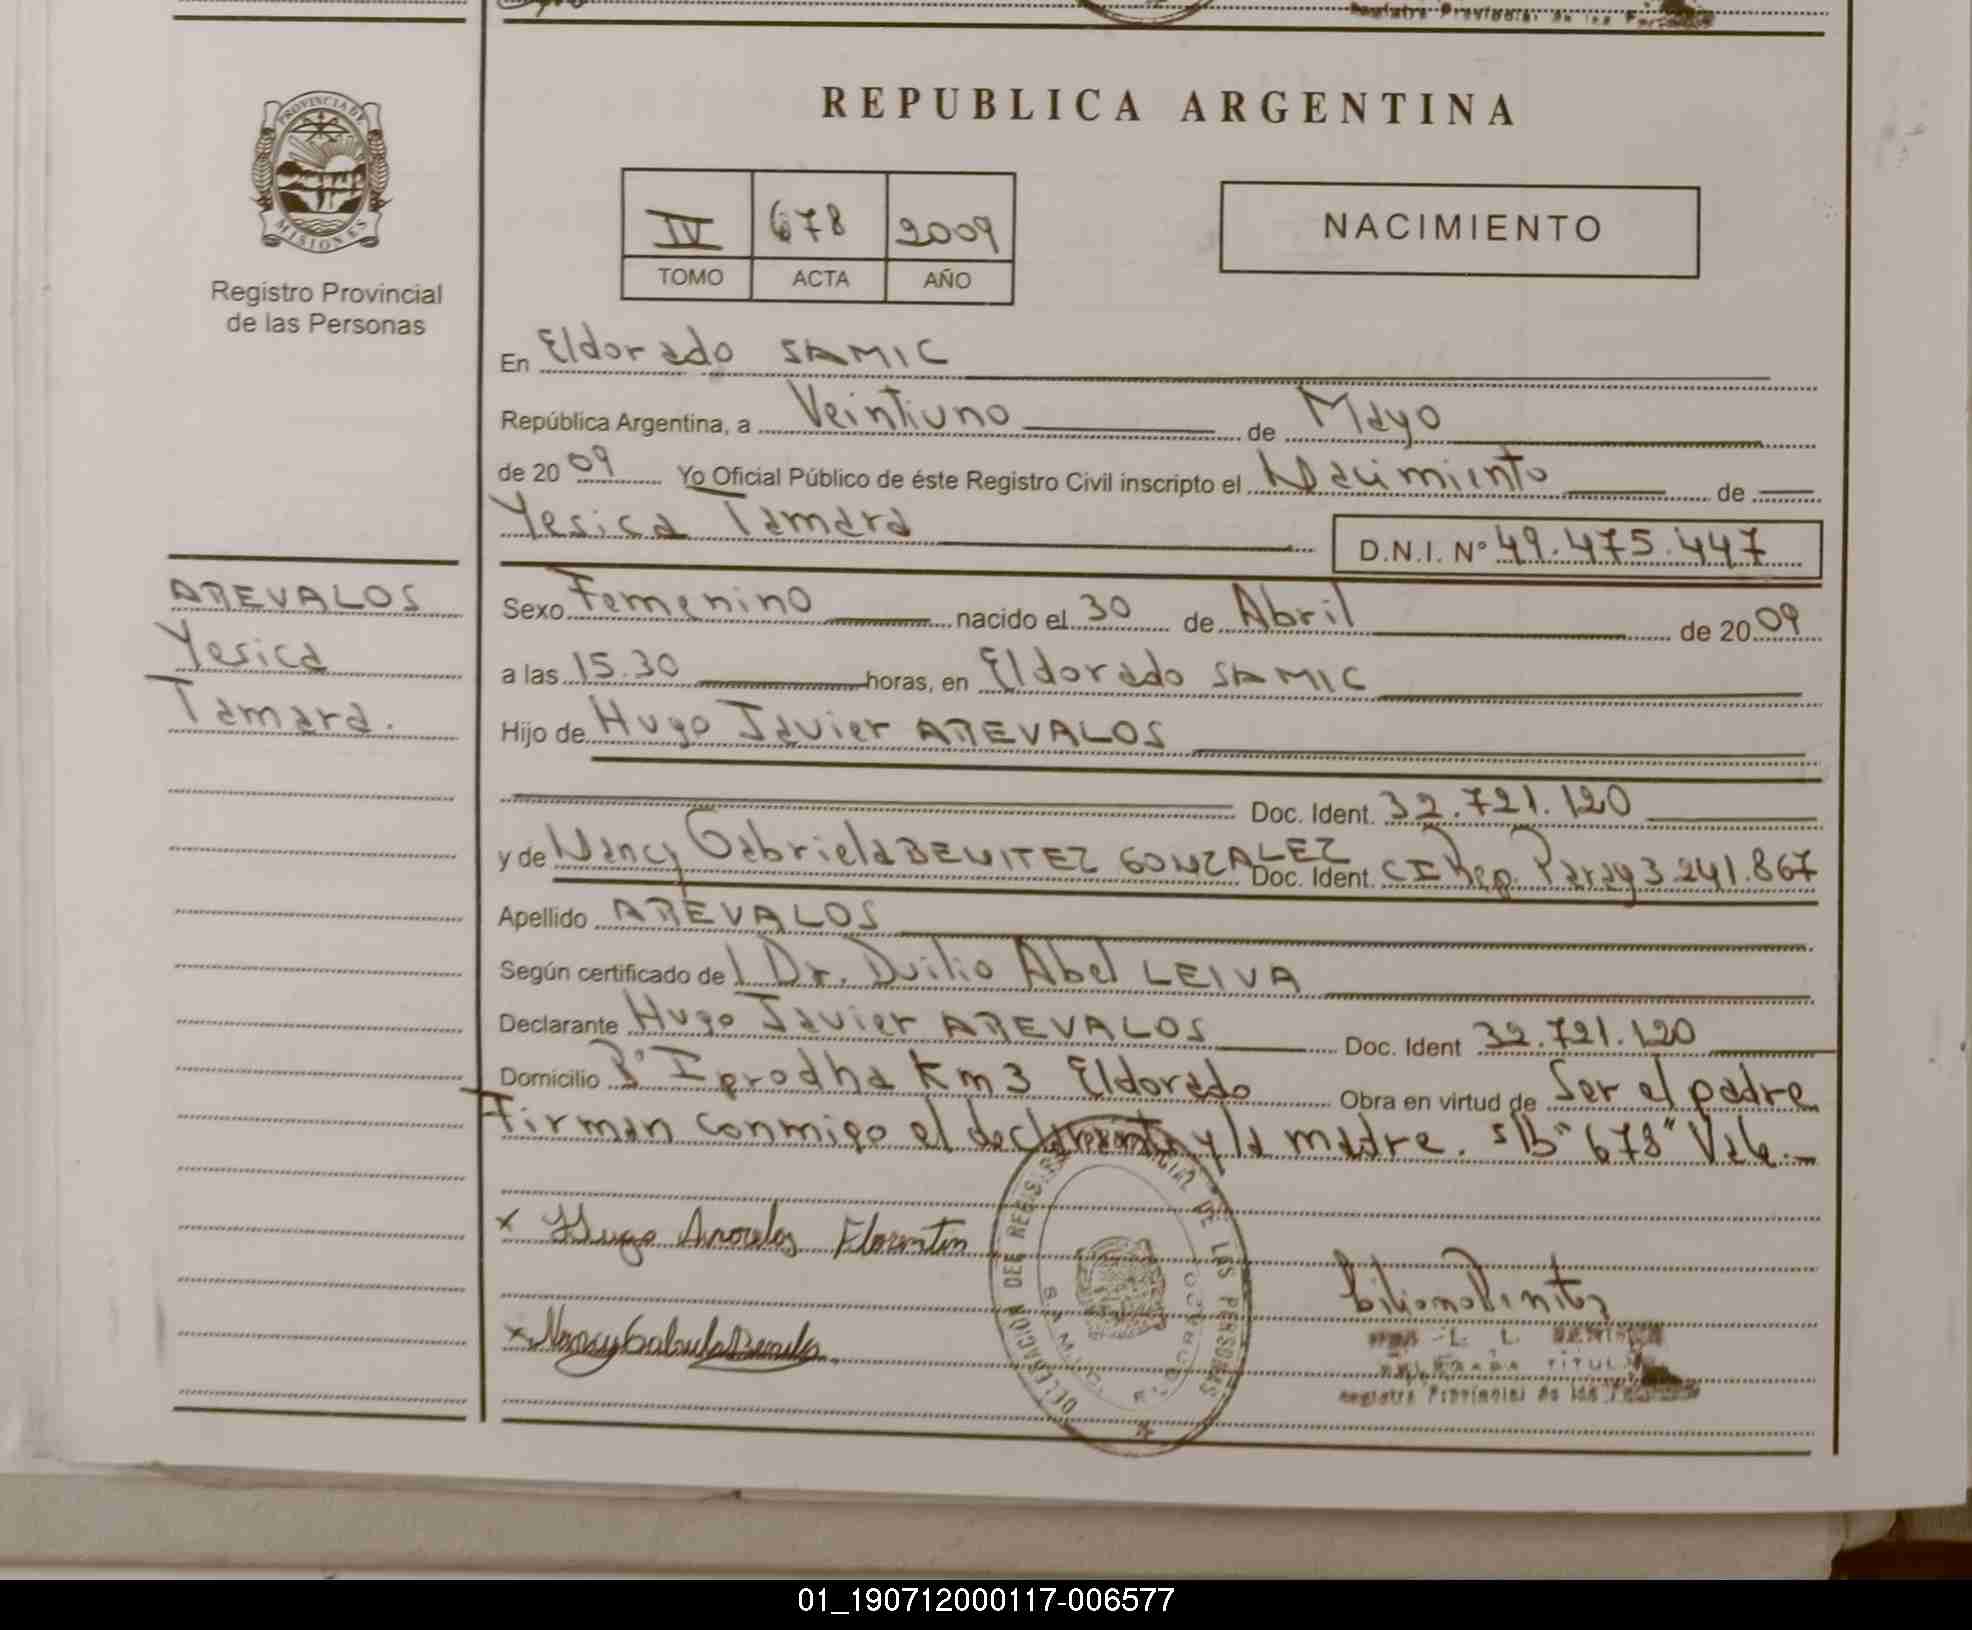 Registro Provincial de las Personas
PROVINCIA DE
MISIONES
Registro Provincial
de las Personas
REPUBLICA ARGENTINA
IV 678 2009
TOMO ACTA AÑO
NACIMIENTO
En Eldorado SAMIC
República Argentina, a Veintiuno de Mayo
de 2009 Yo Oficial Público de éste Registro Civil inscripto el Nacimiento de
Yesica Tamara D.N.I. Nº 49.475.447
AREVALOS
Yesica
Tamara.
Sexo Femenino nacido el 30 de Abril de 2009
a las 15.30 horas, en Eldorado SAMIC
Hijo de Hugo Javier AREVALOS
Doc. Ident. 32.721.120
y de Nancy Gabriela BENITEZ GONZALEZ Doc. Ident. CI Rep. Parag 3.241.867
Apellido AREVALOS
Según certificado de l Dr. Duilio Abel LEIVA
Declarante Hugo Javier AREVALOS Doc. Ident 32.721.120
Domicilio Bº Iprodha Km 3 Eldorado Obra en virtud de Ser el padre
Firman conmigo el declarante y la madre. s/b "678" Vale.
x Hugo Arevalos Florentin
x Nancy Gabriela Benitez
DELEGACION DEL REGISTRO PROVINCIAL DE LAS PERSONAS
Liliana Benitez
L. L. BENITEZ
DELEGADA TITULAR
Registro Provincial de las Personas
01_190712000117-006577